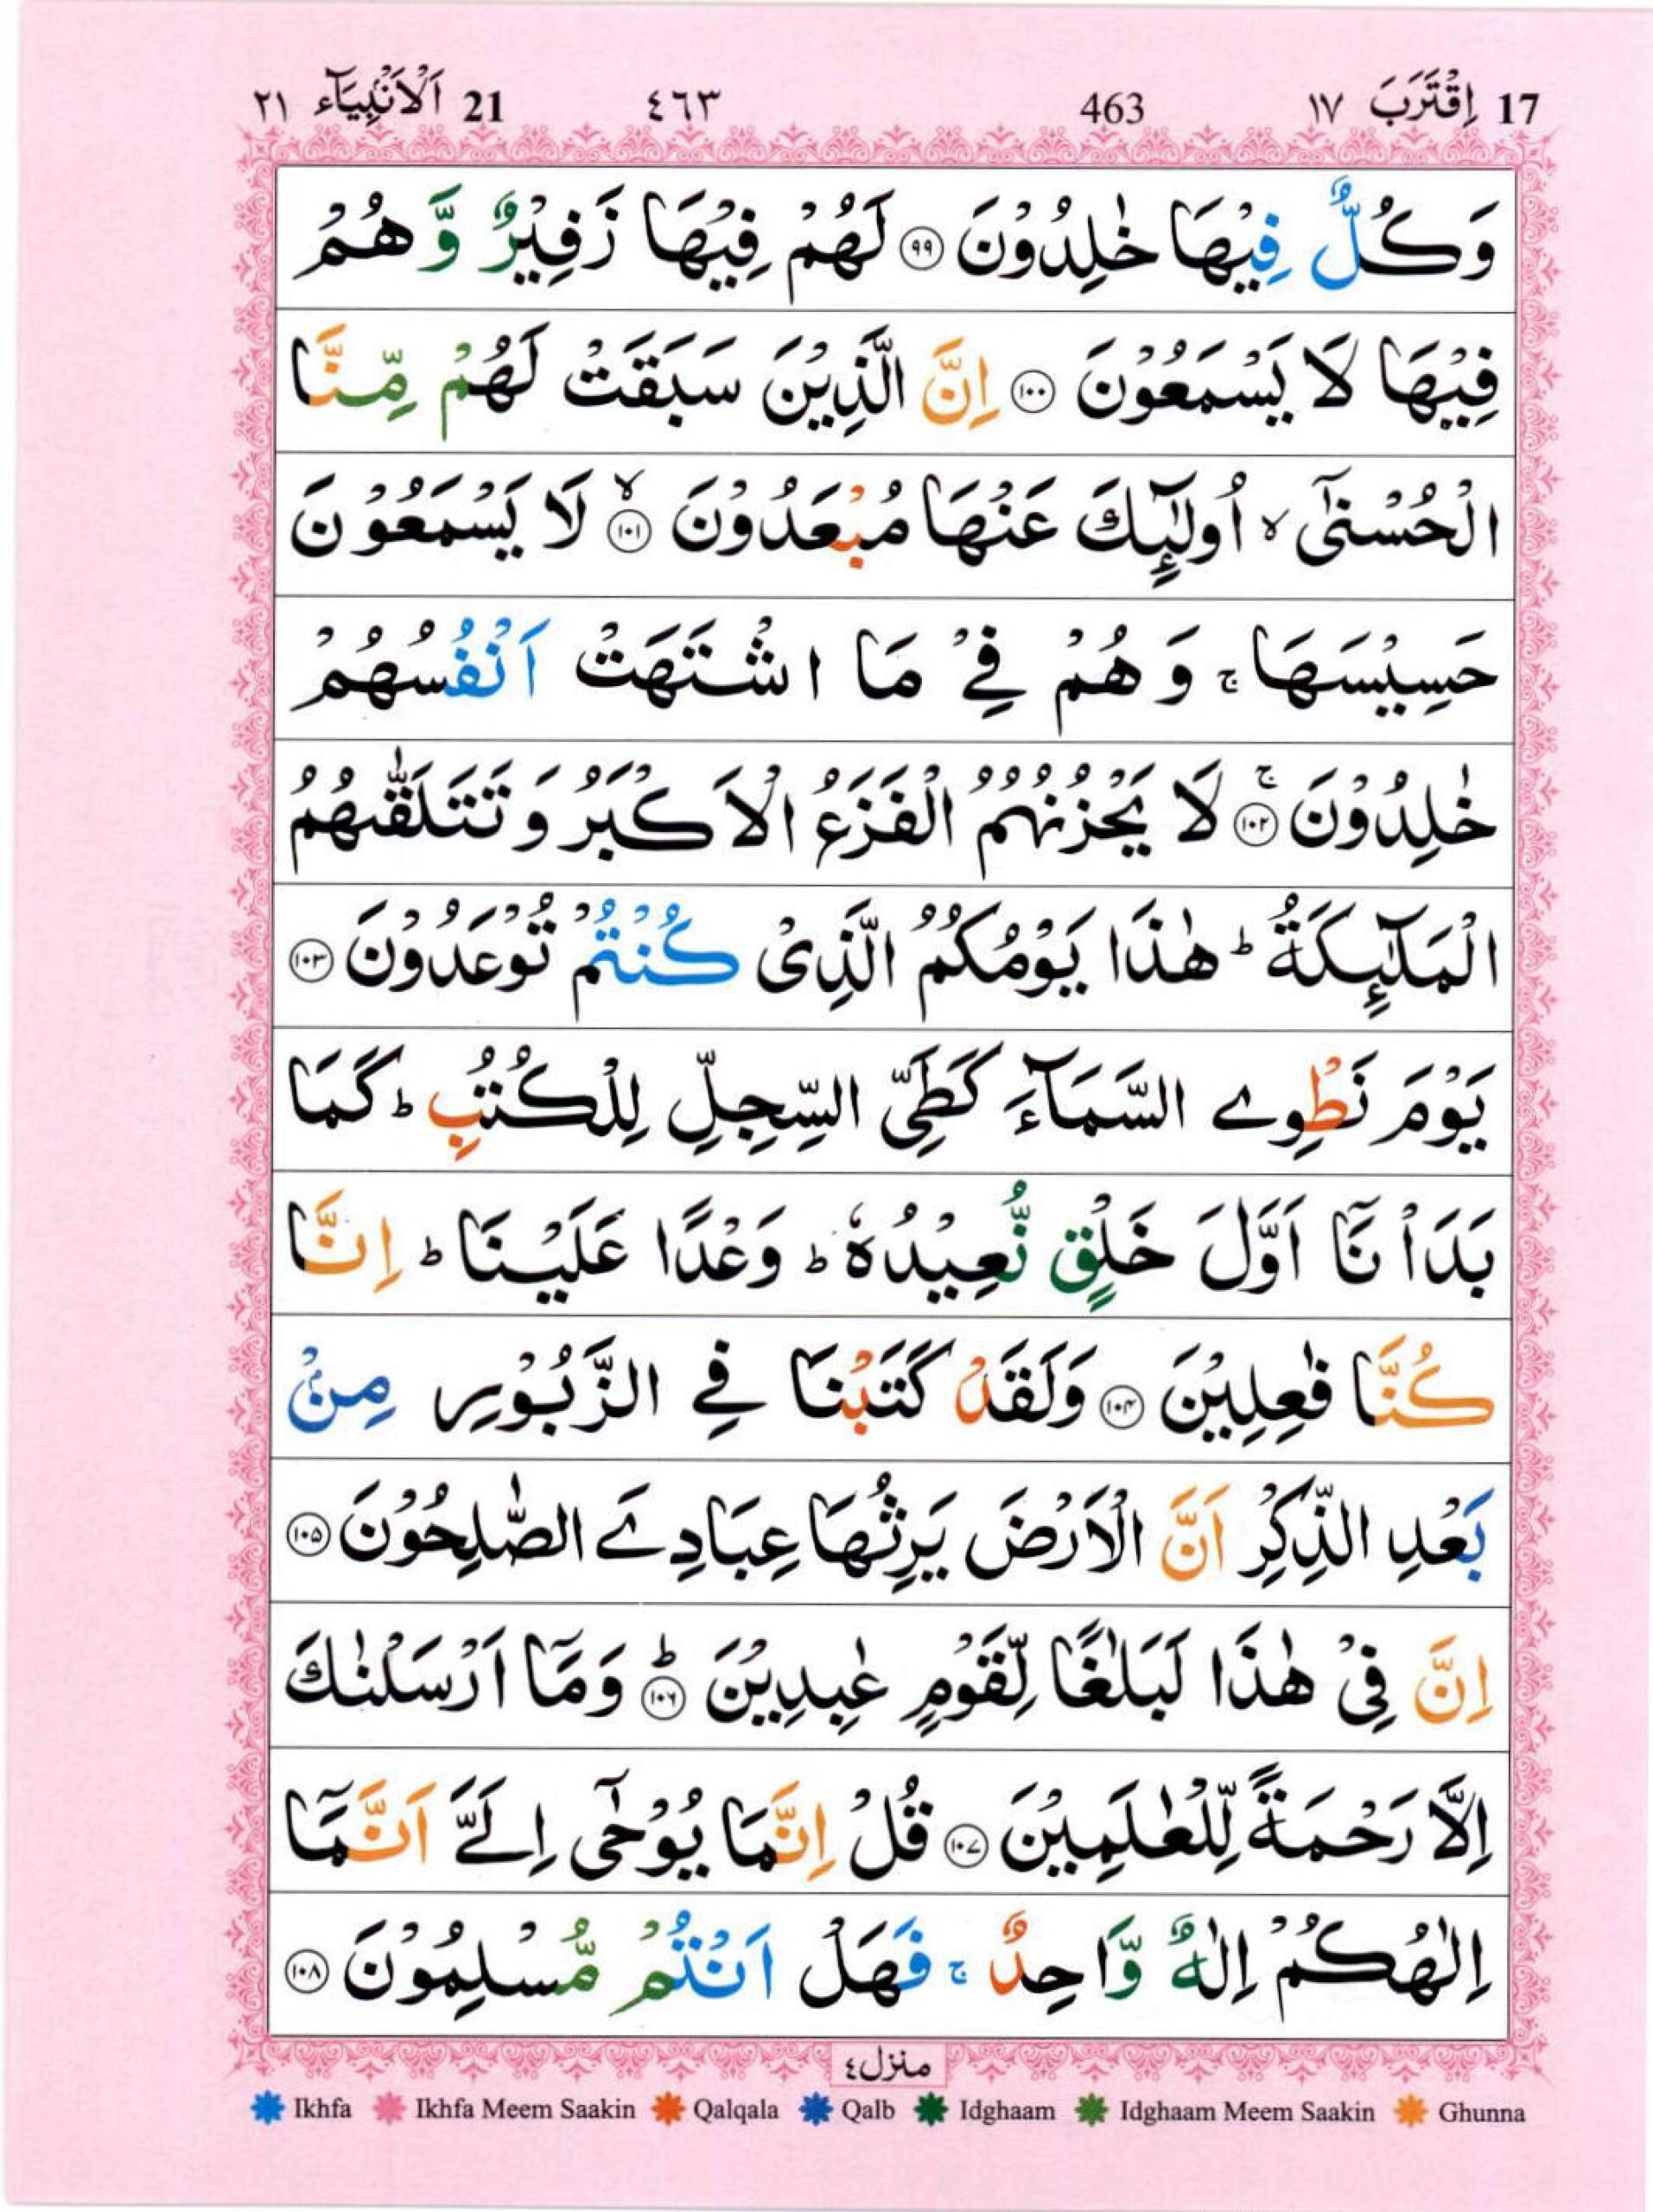 17 اِقْتَرَبَ ١٧ 463 ٤٦٣ 21 اَلْاَنْۢبِيَآء ٢١
وَكُلٌّ فِيْهَا خٰلِدُوْنَ ۹۹ لَهُمْ فِيْهَا زَفِيْرٌ وَّهُمْ
فِيْهَا لَا يَسْمَعُوْنَ ۱۰۰ اِنَّ الَّذِيْنَ سَبَقَتْ لَهُمْ مِّنَّا
الْحُسْنٰٓى ۙ اُولٰٓئِكَ عَنْهَا مُبْعَدُوْنَ ۙ ۱۰۱ لَا يَسْمَعُوْنَ
حَسِيْسَهَا ۚ وَهُمْ فِيْ مَا اشْتَهَتْ اَنْفُسُهُمْ
خٰلِدُوْنَ ۚ ۱۰۲ لَا يَحْزُنُهُمُ الْفَزَعُ الْاَكْبَرُ وَتَتَلَقّٰىهُمُ
الْمَلٰٓئِكَةُ ؕ هٰذَا يَوْمُكُمُ الَّذِيْ كُنْتُمْ تُوْعَدُوْنَ ۱۰۳
يَوْمَ نَطْوِي السَّمَآءَ كَطَيِّ السِّجِلِّ لِلْكُتُبِ ؕ كَمَا
بَدَاْنَآ اَوَّلَ خَلْقٍ نُّعِيْدُهٗ ؕ وَعْدًا عَلَيْنَا ؕ اِنَّا
كُنَّا فٰعِلِيْنَ ۱۰۴ وَلَقَدْ كَتَبْنَا فِي الزَّبُوْرِ مِنْۢ
بَعْدِ الذِّكْرِ اَنَّ الْاَرْضَ يَرِثُهَا عِبَادِيَ الصّٰلِحُوْنَ ۱۰۵
اِنَّ فِيْ هٰذَا لَبَلٰغًا لِّقَوْمٍ عٰبِدِيْنَ ؕ ۱۰۶ وَمَآ اَرْسَلْنٰكَ
اِلَّا رَحْمَةً لِّلْعٰلَمِيْنَ ۱۰۷ قُلْ اِنَّمَا يُوْحٰٓى اِلَيَّ اَنَّمَآ
اِلٰهُكُمْ اِلٰهٌ وَّاحِدٌ ۚ فَهَلْ اَنْتُمْ مُّسْلِمُوْنَ ۱۰۸
منزل ٤
Ikhfa Ikhfa Meem Saakin Qalqala Qalb Idghaam Idghaam Meem Saakin Ghunna